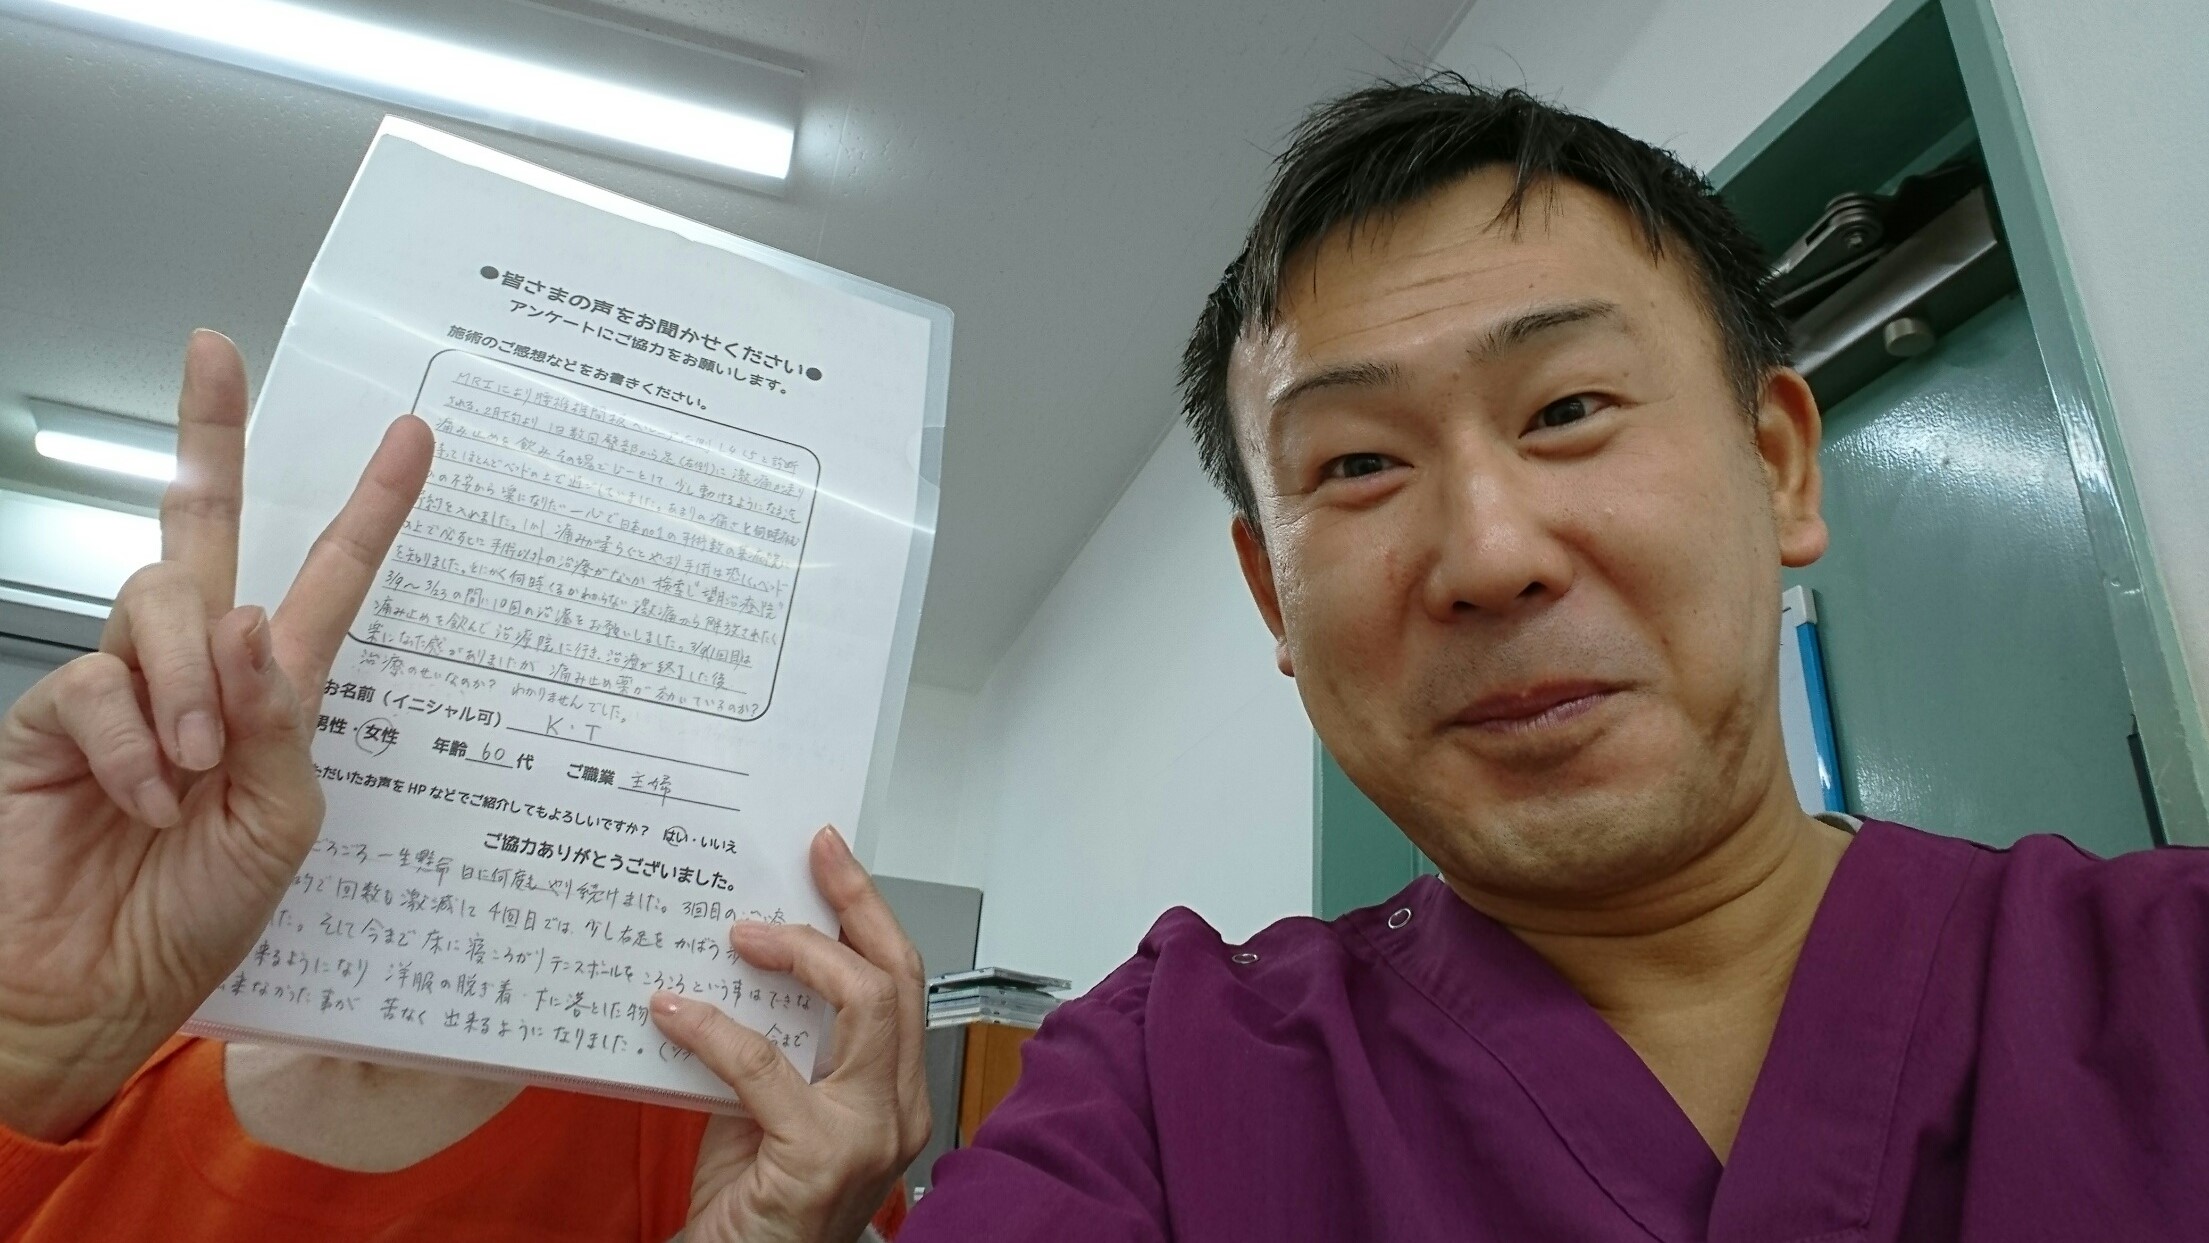 ●皆さまの声をお聞かせください●
アンケートにご協力をお願いします。
施術のご感想などをお書きください。
MRIにより腰椎椎間板ヘルニア L4 L5と診断
される。2月下旬より 1日数回臀部から足(右側)に激痛が走り
痛み止めを飲みその場でじーとして 少し動けるようになる迄
してほとんどベッドの上で過ごしていました。あまりの痛さと
の不安から楽になりたい一心で日本no1の手術数の
予約を入れました。しかし 痛みが柔らぐとやはり手術は恐しくベッド
の上で必死に手術以外の治療がないか 検索し 治療院
を知りました。とにかく何時くるかわからない激痛から解放されたく
3/9～3/23の間に10回の治療をお願いしました。3/9(1回目)は
痛み止めを飲んで治療院に行き、治療が終了した後
楽になった感がありましたが 痛み止め薬が効いているのか?
治療のせいなのか? わかりませんでした。
お名前(イニシャル可) K・T
男性・女性 年齢 60 代 ご職業 主婦
ただいたお声をHPなどでご紹介してもよろしいですか? はい・いいえ
ご協力ありがとうございました。
ごろごろ 一生懸命 日に何度もやり続けました。3回目の治療
で回数も激減して 4回目では、少し右足を かばう
した。そして今まで 床に寝ころがりテニスボールをころころという事はできな
来るようになり 洋服の脱ぎ着 下に落とした物 今まで
出来なかった事が 苦なく 出来るようになりました。